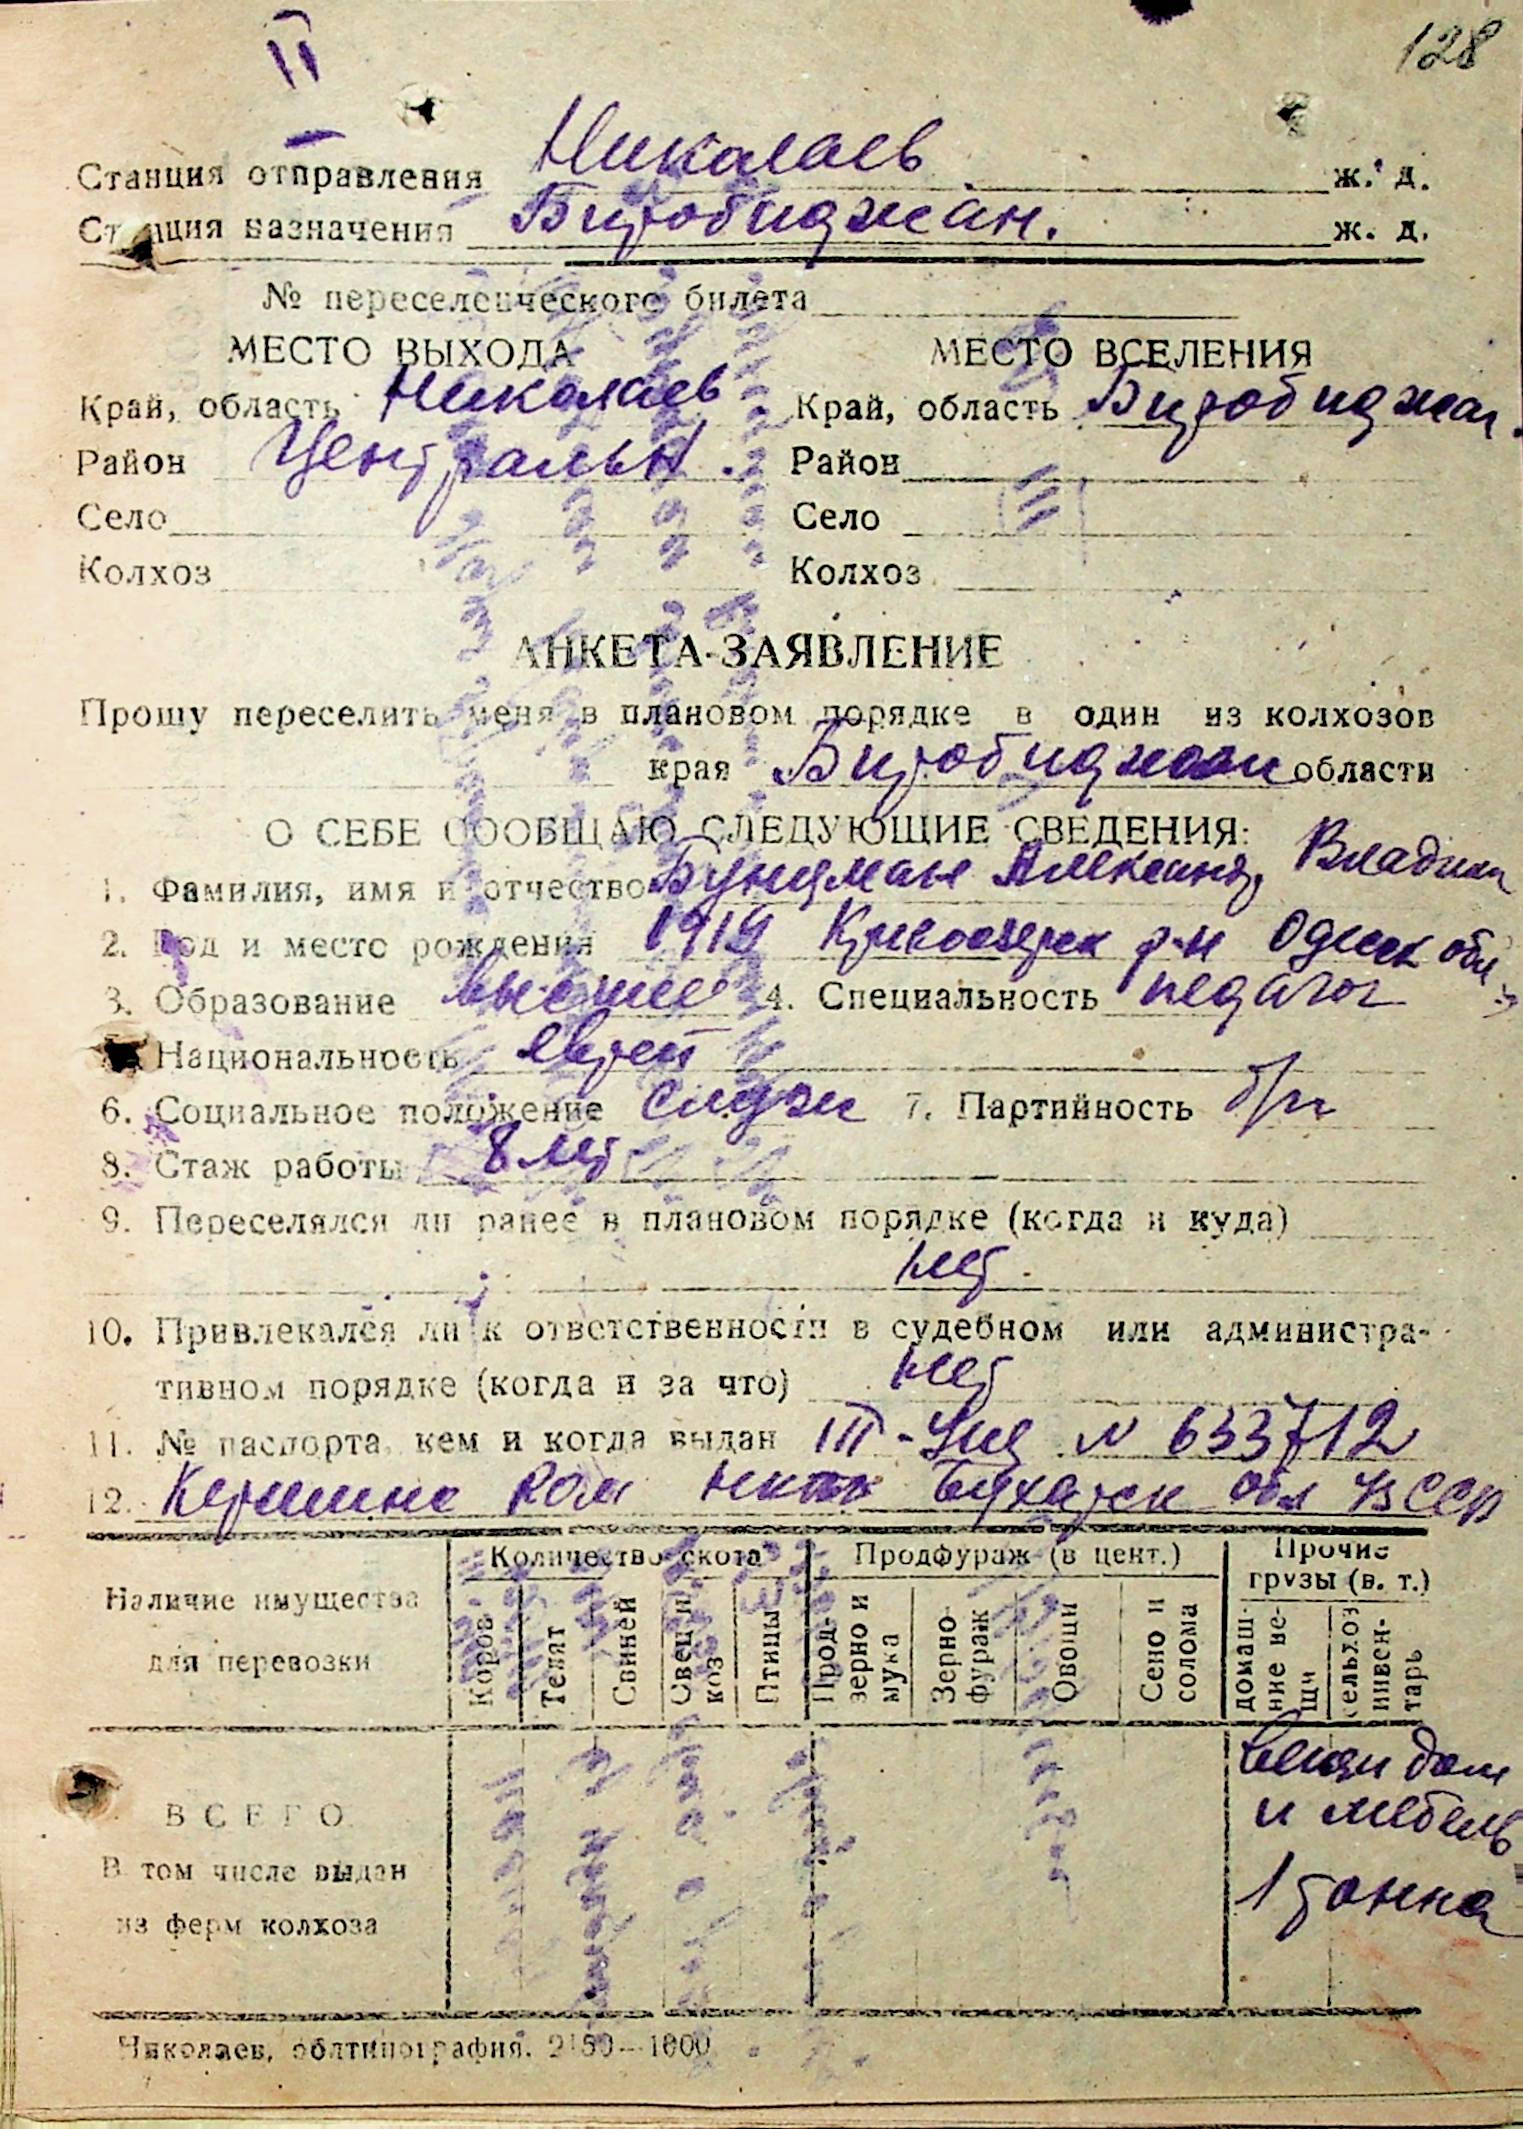 128
Станция отправления Николаев ж. д.
Станция назначения Биробиджан. ж. д.
№ переселенческого билета
МЕСТО ВЫХОДА МЕСТО ВСЕЛЕНИЯ
Край, область Николаев Край, область Биробиджан.
Район Центральн. Район
Село Село
Колхоз Колхоз
АНКЕТА-ЗАЯВЛЕНИЕ
Прошу переселить меня в плановом порядке в один из колхозов
края Биробиджан области
О СЕБЕ СООБЩАЮ СЛЕДУЮЩИЕ СВЕДЕНИЯ:
1. Фамилия, имя и отчество Бундман Александ. Владим
2. Год и место рождения 1919 Кривоозерск р-н Одесск обл
3. Образование высшее 4. Специальность педагог
Национальность еврей
6. Социальное положение служ 7. Партийность б/п
8. Стаж работы 8 лет
9. Переселялся ли ранее в плановом порядке (когда и куда)
нет.
10. Привлекался ли к ответственности в судебном или администра-
тивном порядке (когда и за что) нет
11. № паспорта, кем и когда выдан III - № 633712
12. Кермине Бухарск обл УзССР
Наличие имущества для перевозки Количество скота Продфураж (в цент.) Прочие грузы (в. т.)
Коров Телят Свиней Овец и коз Птицы Прод- зерно и мука Зерно- фураж Овощи Сено и солома домаш- ние ве- щи сельхоз инвен- тарь
вещи дом
и мебель
1 тонна
ВСЕГО
В том числе выдан
из ферм колхоза
Николаев, облтипография. 2150—1000